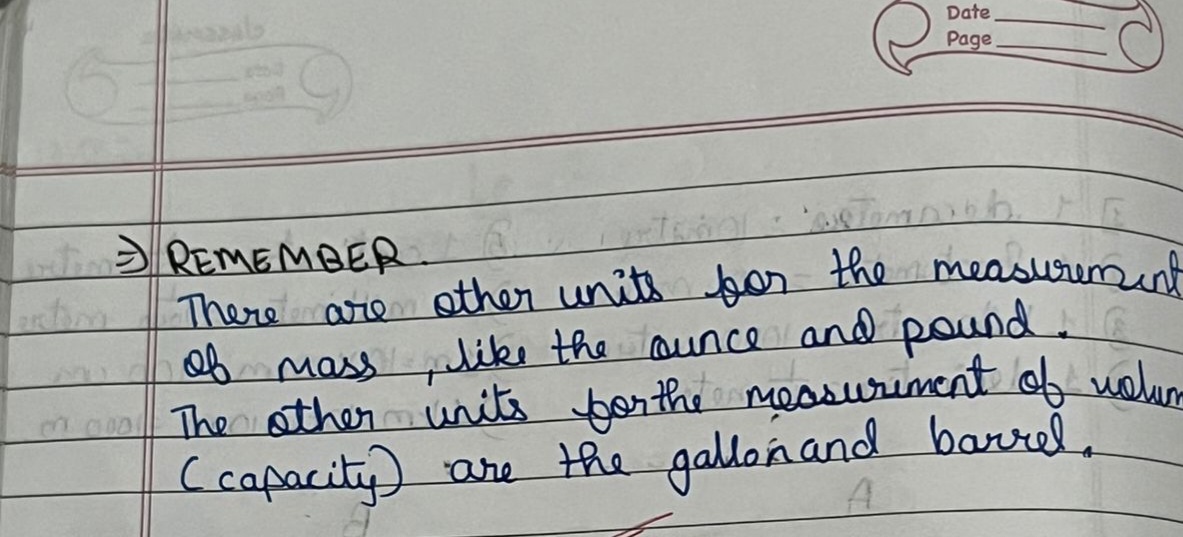 Date
Page
⇒ REMEMBER.
There are other units for the measurement
of mass, like the ounce and pound.
The other units for the measuriment of volum
(capacity) are the gallon and barrel.
A